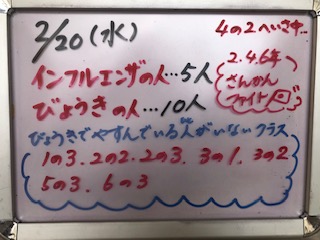 2/20(水)
4の2へいさ中…
インフルエンザの人…5人
びょうきの人…10人
2.4.6年
さんかん
ファイト
びょうきでやすんでいる人がいないクラス
1の3.2の2.2の3.3の1.3の2
5の3.6の3